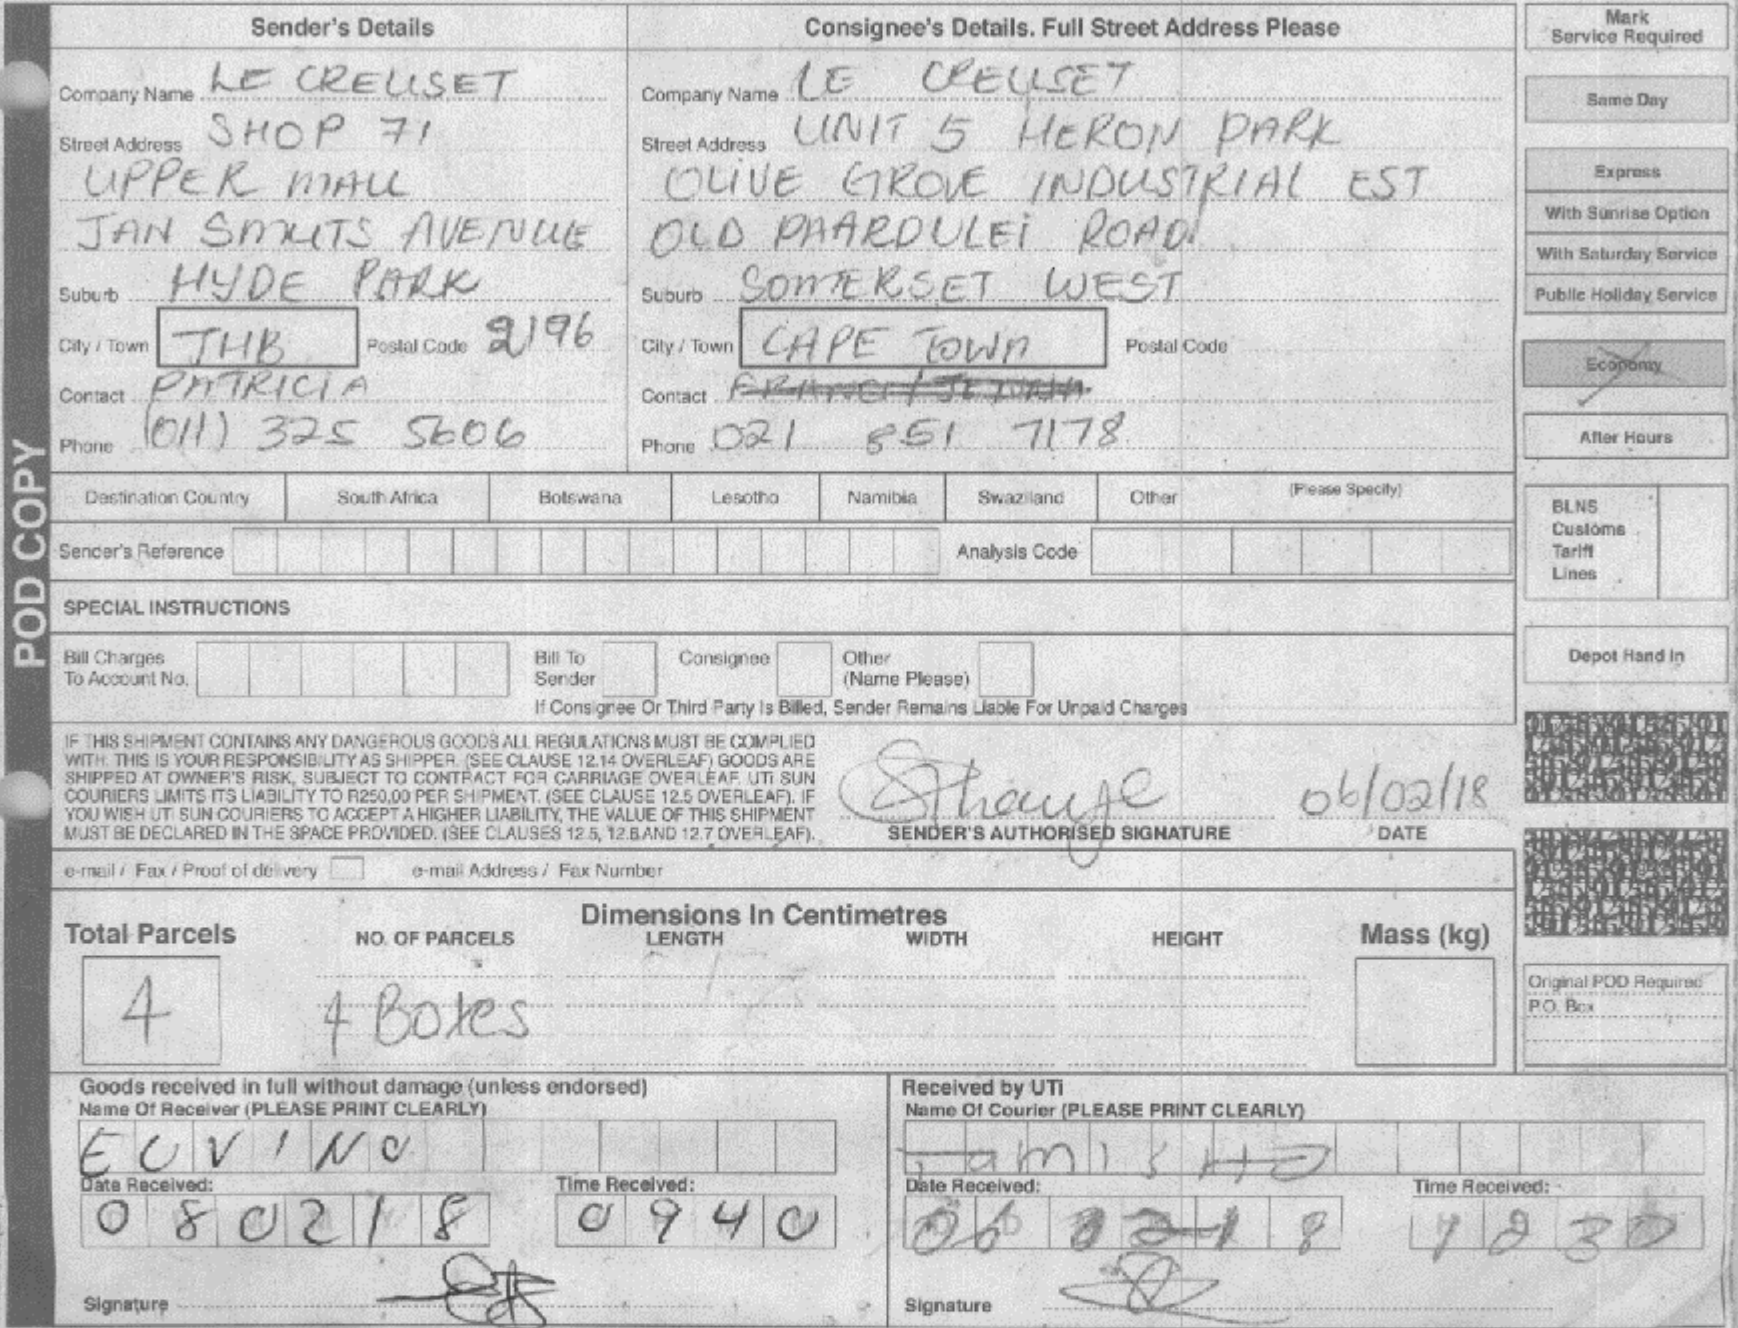 POD COPY
Sender's Details
Company Name LE CREUSET
Street Address SHOP 71
UPPER MALL
JAN SMUTS AVENUE
Suburb HYDE PARK
City / Town JHB Postal Code 2196
Contact PATRICIA
Phone (011) 325 5606
Consignee's Details. Full Street Address Please
Company Name LE CREUSET
Street Address UNIT 5 HERON PARK
OLIVE GROVE INDUSTRIAL EST
OLD PAARDULEI ROAD
Suburb SOMERSET WEST
City / Town CAPE TOWN Postal Code
Contact
Phone 021 851 7178
Mark
Service Required
Same Day
Express
With Sunrise Option
With Saturday Service
Public Holiday Service
Economy
After Hours
Destination Country South Africa Botswana Lesotho Namibia Swaziland Other (Please Specify)
Sender's Reference Analysis Code
BLNS
Customs
Tariff
Lines
SPECIAL INSTRUCTIONS
Bill Charges
To Account No.
Bill To
Sender
Consignee
Other
(Name Please)
If Consignee Or Third Party Is Billed, Sender Remains Liable For Unpaid Charges
Depot Hand In
IF THIS SHIPMENT CONTAINS ANY DANGEROUS GOODS ALL REGULATIONS MUST BE COMPLIED
WITH. THIS IS YOUR RESPONSIBILITY AS SHIPPER. (SEE CLAUSE 12.14 OVERLEAF) GOODS ARE
SHIPPED AT OWNER'S RISK, SUBJECT TO CONTRACT FOR CARRIAGE OVERLEAF. UTi SUN
COURIERS LIMITS ITS LIABILITY TO R250,00 PER SHIPMENT. (SEE CLAUSE 12.5 OVERLEAF). IF
YOU WISH UTi SUN COURIERS TO ACCEPT A HIGHER LIABILITY, THE VALUE OF THIS SHIPMENT
MUST BE DECLARED IN THE SPACE PROVIDED. (SEE CLAUSES 12.5, 12.6 AND 12.7 OVERLEAF).
06/02/18
SENDER'S AUTHORISED SIGNATURE DATE
e-mail / Fax / Proof of delivery e-mail Address / Fax Number
Dimensions In Centimetres
Total Parcels NO. OF PARCELS LENGTH WIDTH HEIGHT Mass (kg)
4 4 Boxes
Original POD Required
P.O. Box
Goods received in full without damage (unless endorsed)
Name Of Receiver (PLEASE PRINT CLEARLY)
Date Received: Time Received:
080218 0940
Signature
Received by UTi
Name Of Courier (PLEASE PRINT CLEARLY)
Date Received: Time Received:
060218 1230
Signature